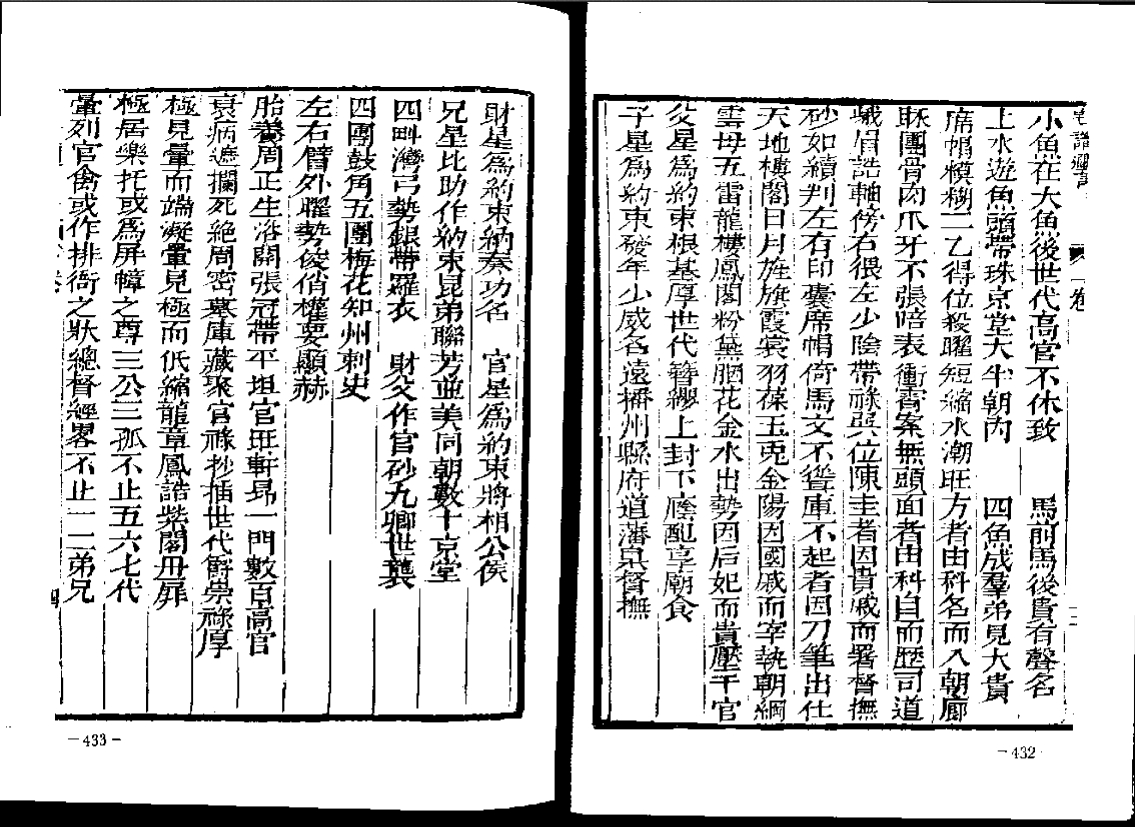 小魚在大魚後世代高官不休致　馬前馬後貴有聲名
上水遊魚頭帶珠京堂大半朝內　四魚成羣弟兄大貴
席帽模糊一乙得位殺曜短縮水潮旺方者由科名而入朝廊
財團骨肉爪牙不張暗表衝霄案無頭面者由科目而歷司道
蛾眉誥軸傍右偎左少陰帶祿巽位陳圭者因貴戚而署督撫
砂如續判左有印囊席帽倚馬文不聳庫不起者因刀筆出仕
天地樓閣日月旌旗霞裳羽葆玉兎金陽因國戚而宰執朝綱
雲母五雷龍樓鳳閣粉黛胭花金水出勢因后妃而貴壓千官
父星為約束根基厚世代簪纓上封下廕配享廟食
子星為約束發年少威名遠播州縣府道藩臬督撫
卷一
－432
財星為約束納奏功名　官星為約束將相公侯
兄星比助作約束昆弟聯芳並美同朝數十京堂
四畔灣弓勢銀帶羅衣　財父作官砂九卿世襲
四團鼓角五團梅花知州刺史
左右臂外曜勢俊俏權要顯赫
胎養周正生浴開張冠帶平坦官旺軒昂一門數百高官
衰病遮攔死絕周密墓庫藏聚官祿抄插世代爵崇祿厚
極見暈而端凝暈見極而低縮龍章鳳誥紫閣丹屏
極居樂托或為屏幛之尊三公三孤不止五六七代
暈列官禽或作排衙之狀總督經畧不止一二弟兄
－433－